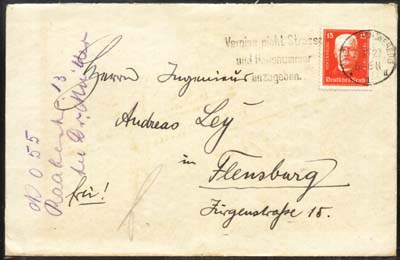 Vergiss nicht Strasse
und Hausnummer
anzugeben.
15 15
Deutsches Reich
Herrn Ingenieur
Andreas Ley
in
Flensburg
Jürgenstraße 15.
frei!
055
13
bei Dr.